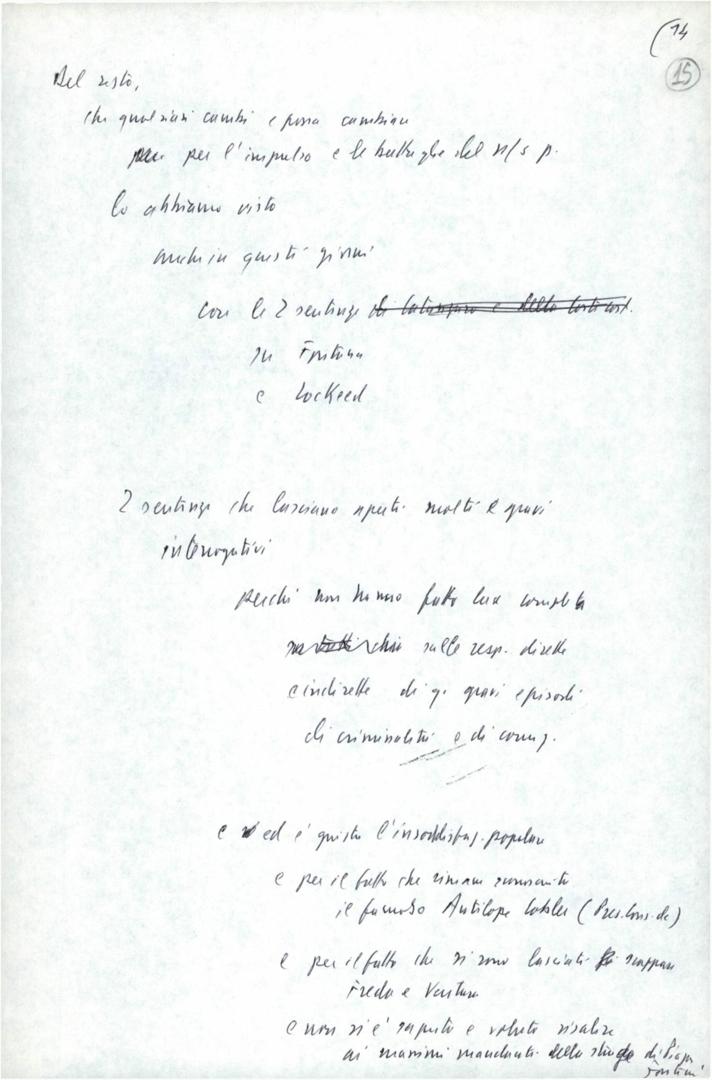 (14
15
Del resto,
che qualsiasi cambi e possa cambiare
per l'impulso e le battaglie del n/s p.
lo abbiamo visto
anche in questi giorni
con le 2 sentenze
su Fontana
e Lockeed
2 sentenze che lasciano aperti molti e gravi
interrogativi
perché non hanno fatto luce completa
sulle resp. dirette
e indirette di q. gravi episodi
di criminalità e di corruz.
e ed è giusta l'insoddisfaz. popolare
e per il fatto che rimane sconosciuto
il famoso Antilope Cobler (Pres. Cons. dc)
e per il fatto che si sono lasciati scappare
Freda e Ventura
e non si è saputo e voluto risalire
ai massimi mandanti della strage di Piazza
Fontana